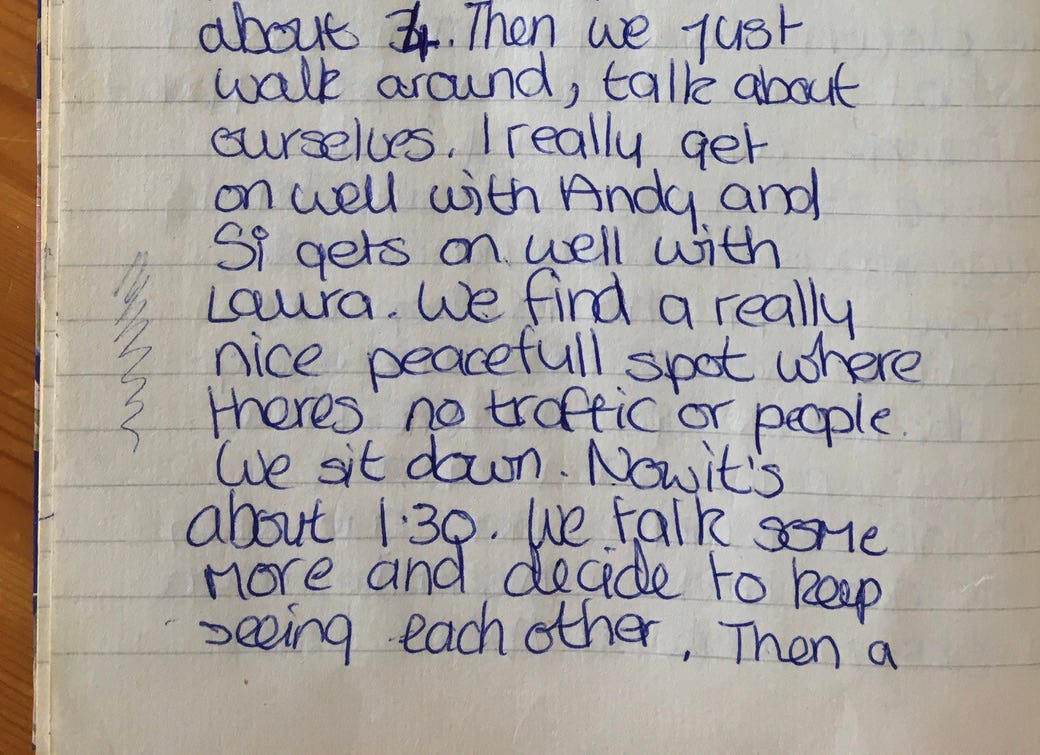 about 4. Then we just
walk around, talk about
ourselves. I really get
on well with Andy and
Si gets on well with
Laura. We find a really
nice peacefull spot where
theres no traffic or people.
We sit down. Now it's
about 1.30. We talk some
more and decide to keep
seeing each other. Then a